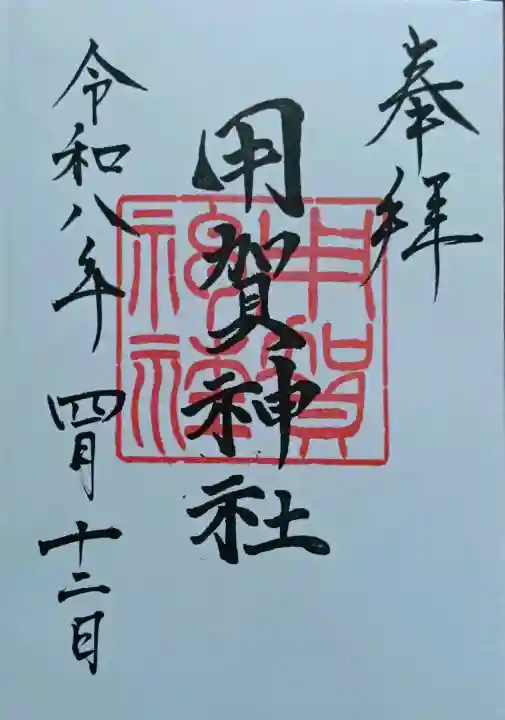 奉拝
用賀神社
令和八年 四月 十二日
用賀神社